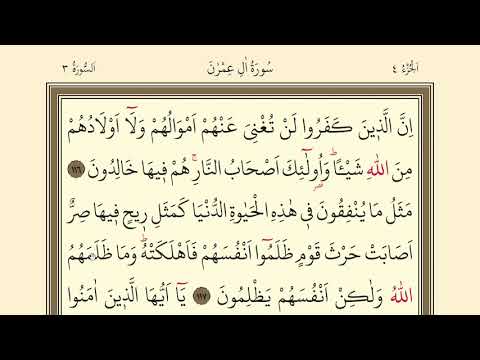 اَلْجُزْءُ ٤ سُورَةُ اٰلِ عِمْرٰنَ اَلسُّورَةُ ٣
اِنَّ الَّذ۪ينَ كَفَرُوا لَنْ تُغْنِيَ عَنْهُمْ اَمْوَالُهُمْ وَلَٓا اَوْلَادُهُمْ
مِنَ اللّٰهِ شَيْـًٔاۜ وَاُو۬لٰٓئِكَ اَصْحَابُ النَّارِۚ هُمْ ف۪يهَا خَالِدُونَ ﴿١١٦﴾
مَثَلُ مَا يُنْفِقُونَ ف۪ي هٰذِهِ الْحَيٰوةِ الدُّنْيَا كَمَثَلِ ر۪يحٍ ف۪يهَا صِرٌّ
اَصَابَتْ حَرْثَ قَوْمٍ ظَلَمُٓوا اَنْفُسَهُمْ فَاَهْلَكَتْهُۜ وَمَا ظَلَمَهُمُ
اللّٰهُ وَلٰكِنْ اَنْفُسَهُمْ يَظْلِمُونَ ﴿١١٧﴾ يَٓا اَيُّهَا الَّذ۪ينَ اٰمَنُوا